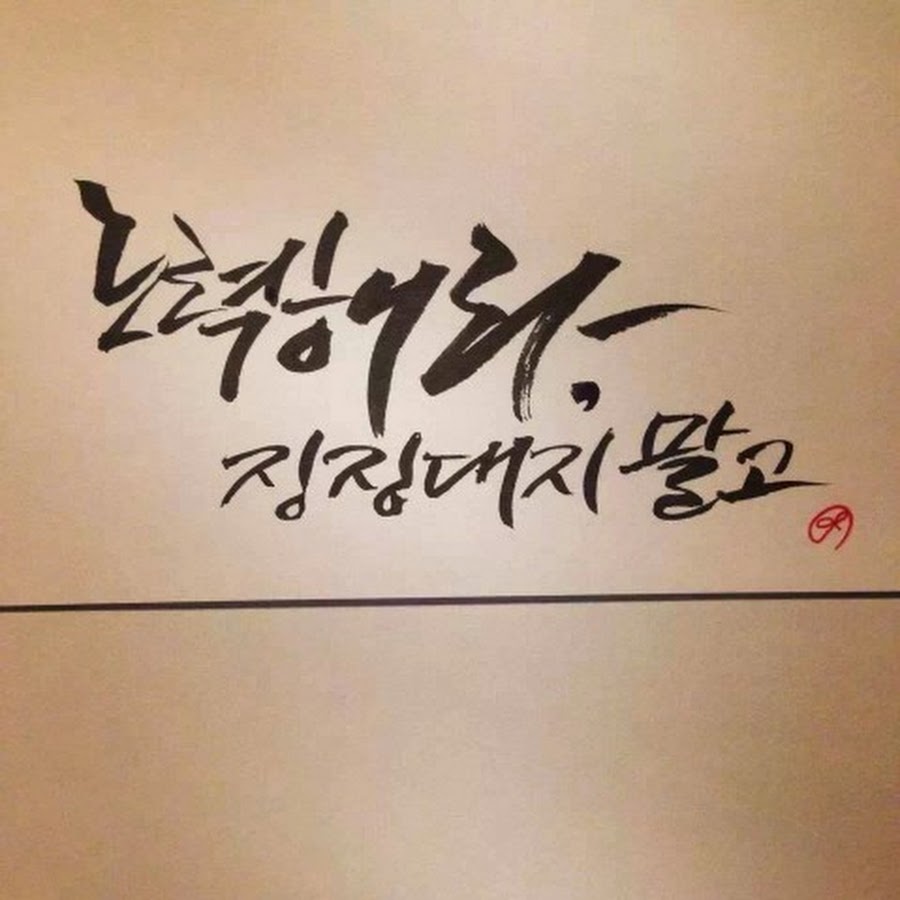 노력해라,
징징대지 말고